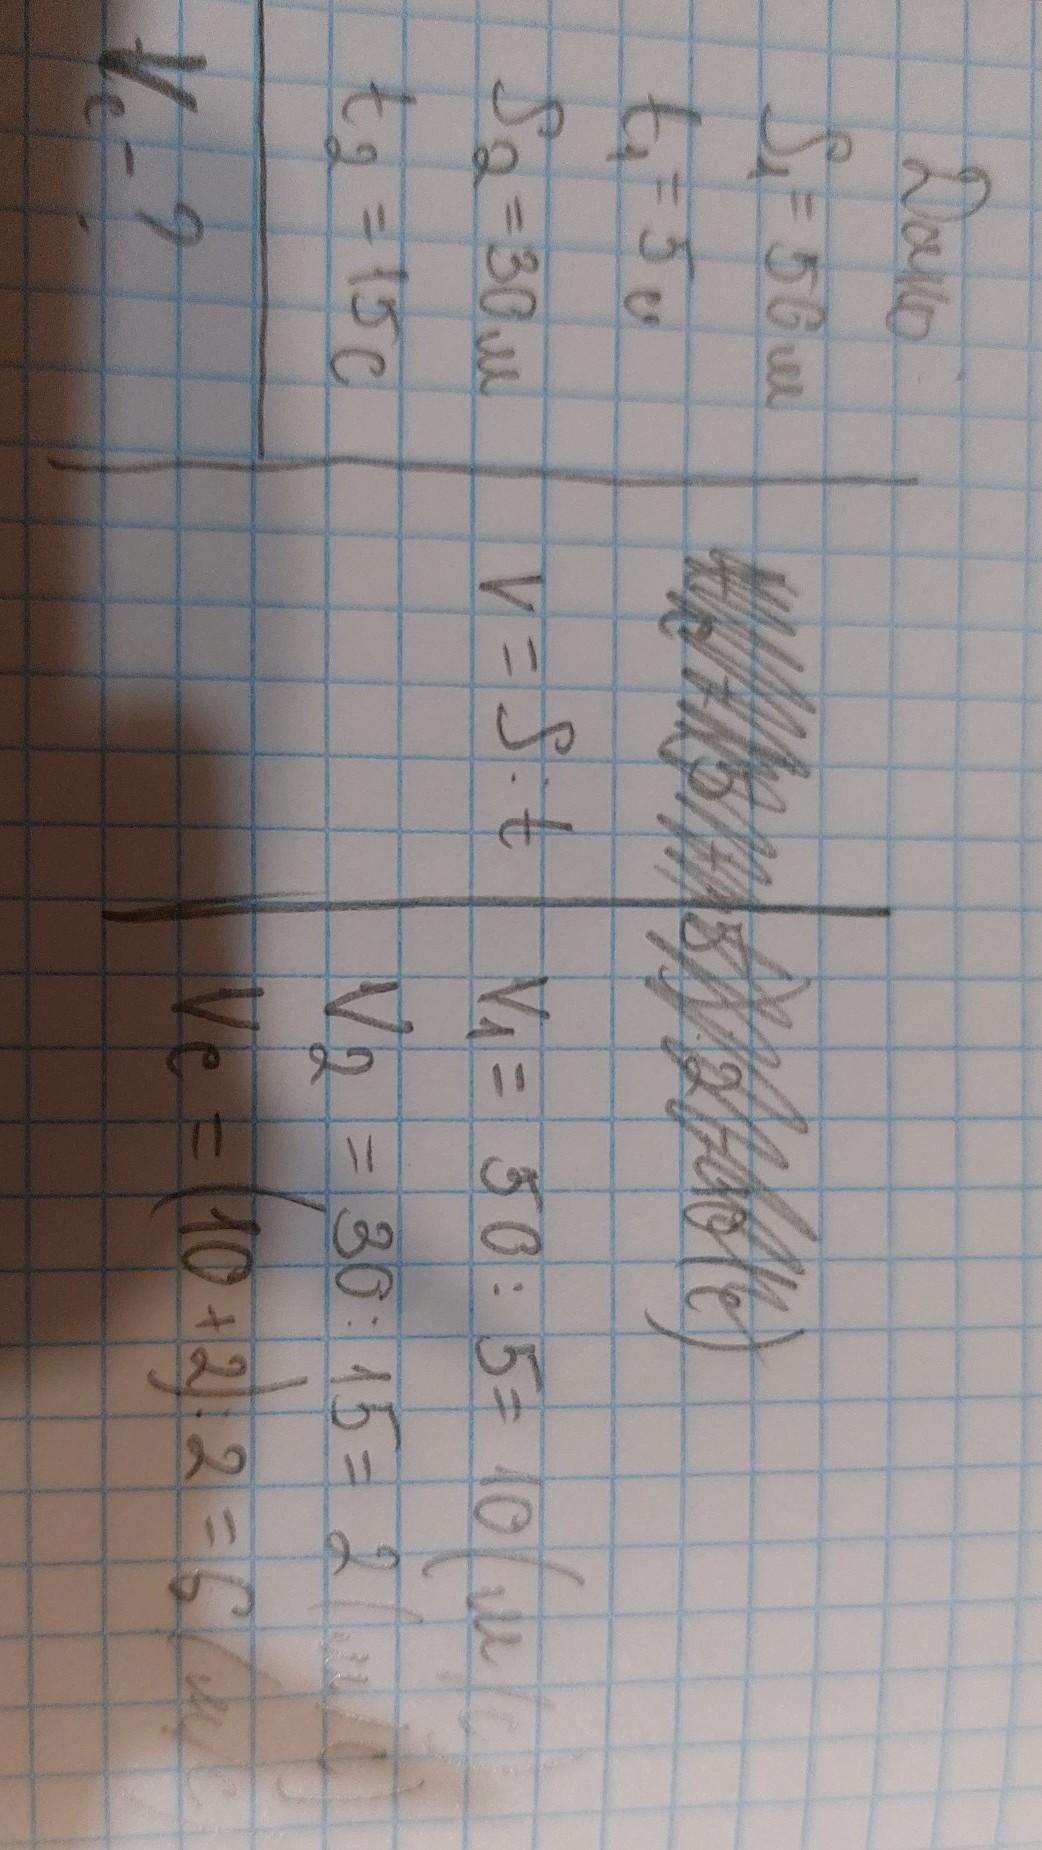 Дано:
S1 = 50м
t1 = 5 с
S2 = 30м
t2 = 15с
Vc - ?
V = S : t
V1 = 50 : 5 = 10 (м/с)
V2 = 30 : 15 = 2 (м/с)
Vc = (10 + 2) : 2 = 6 (м/с)